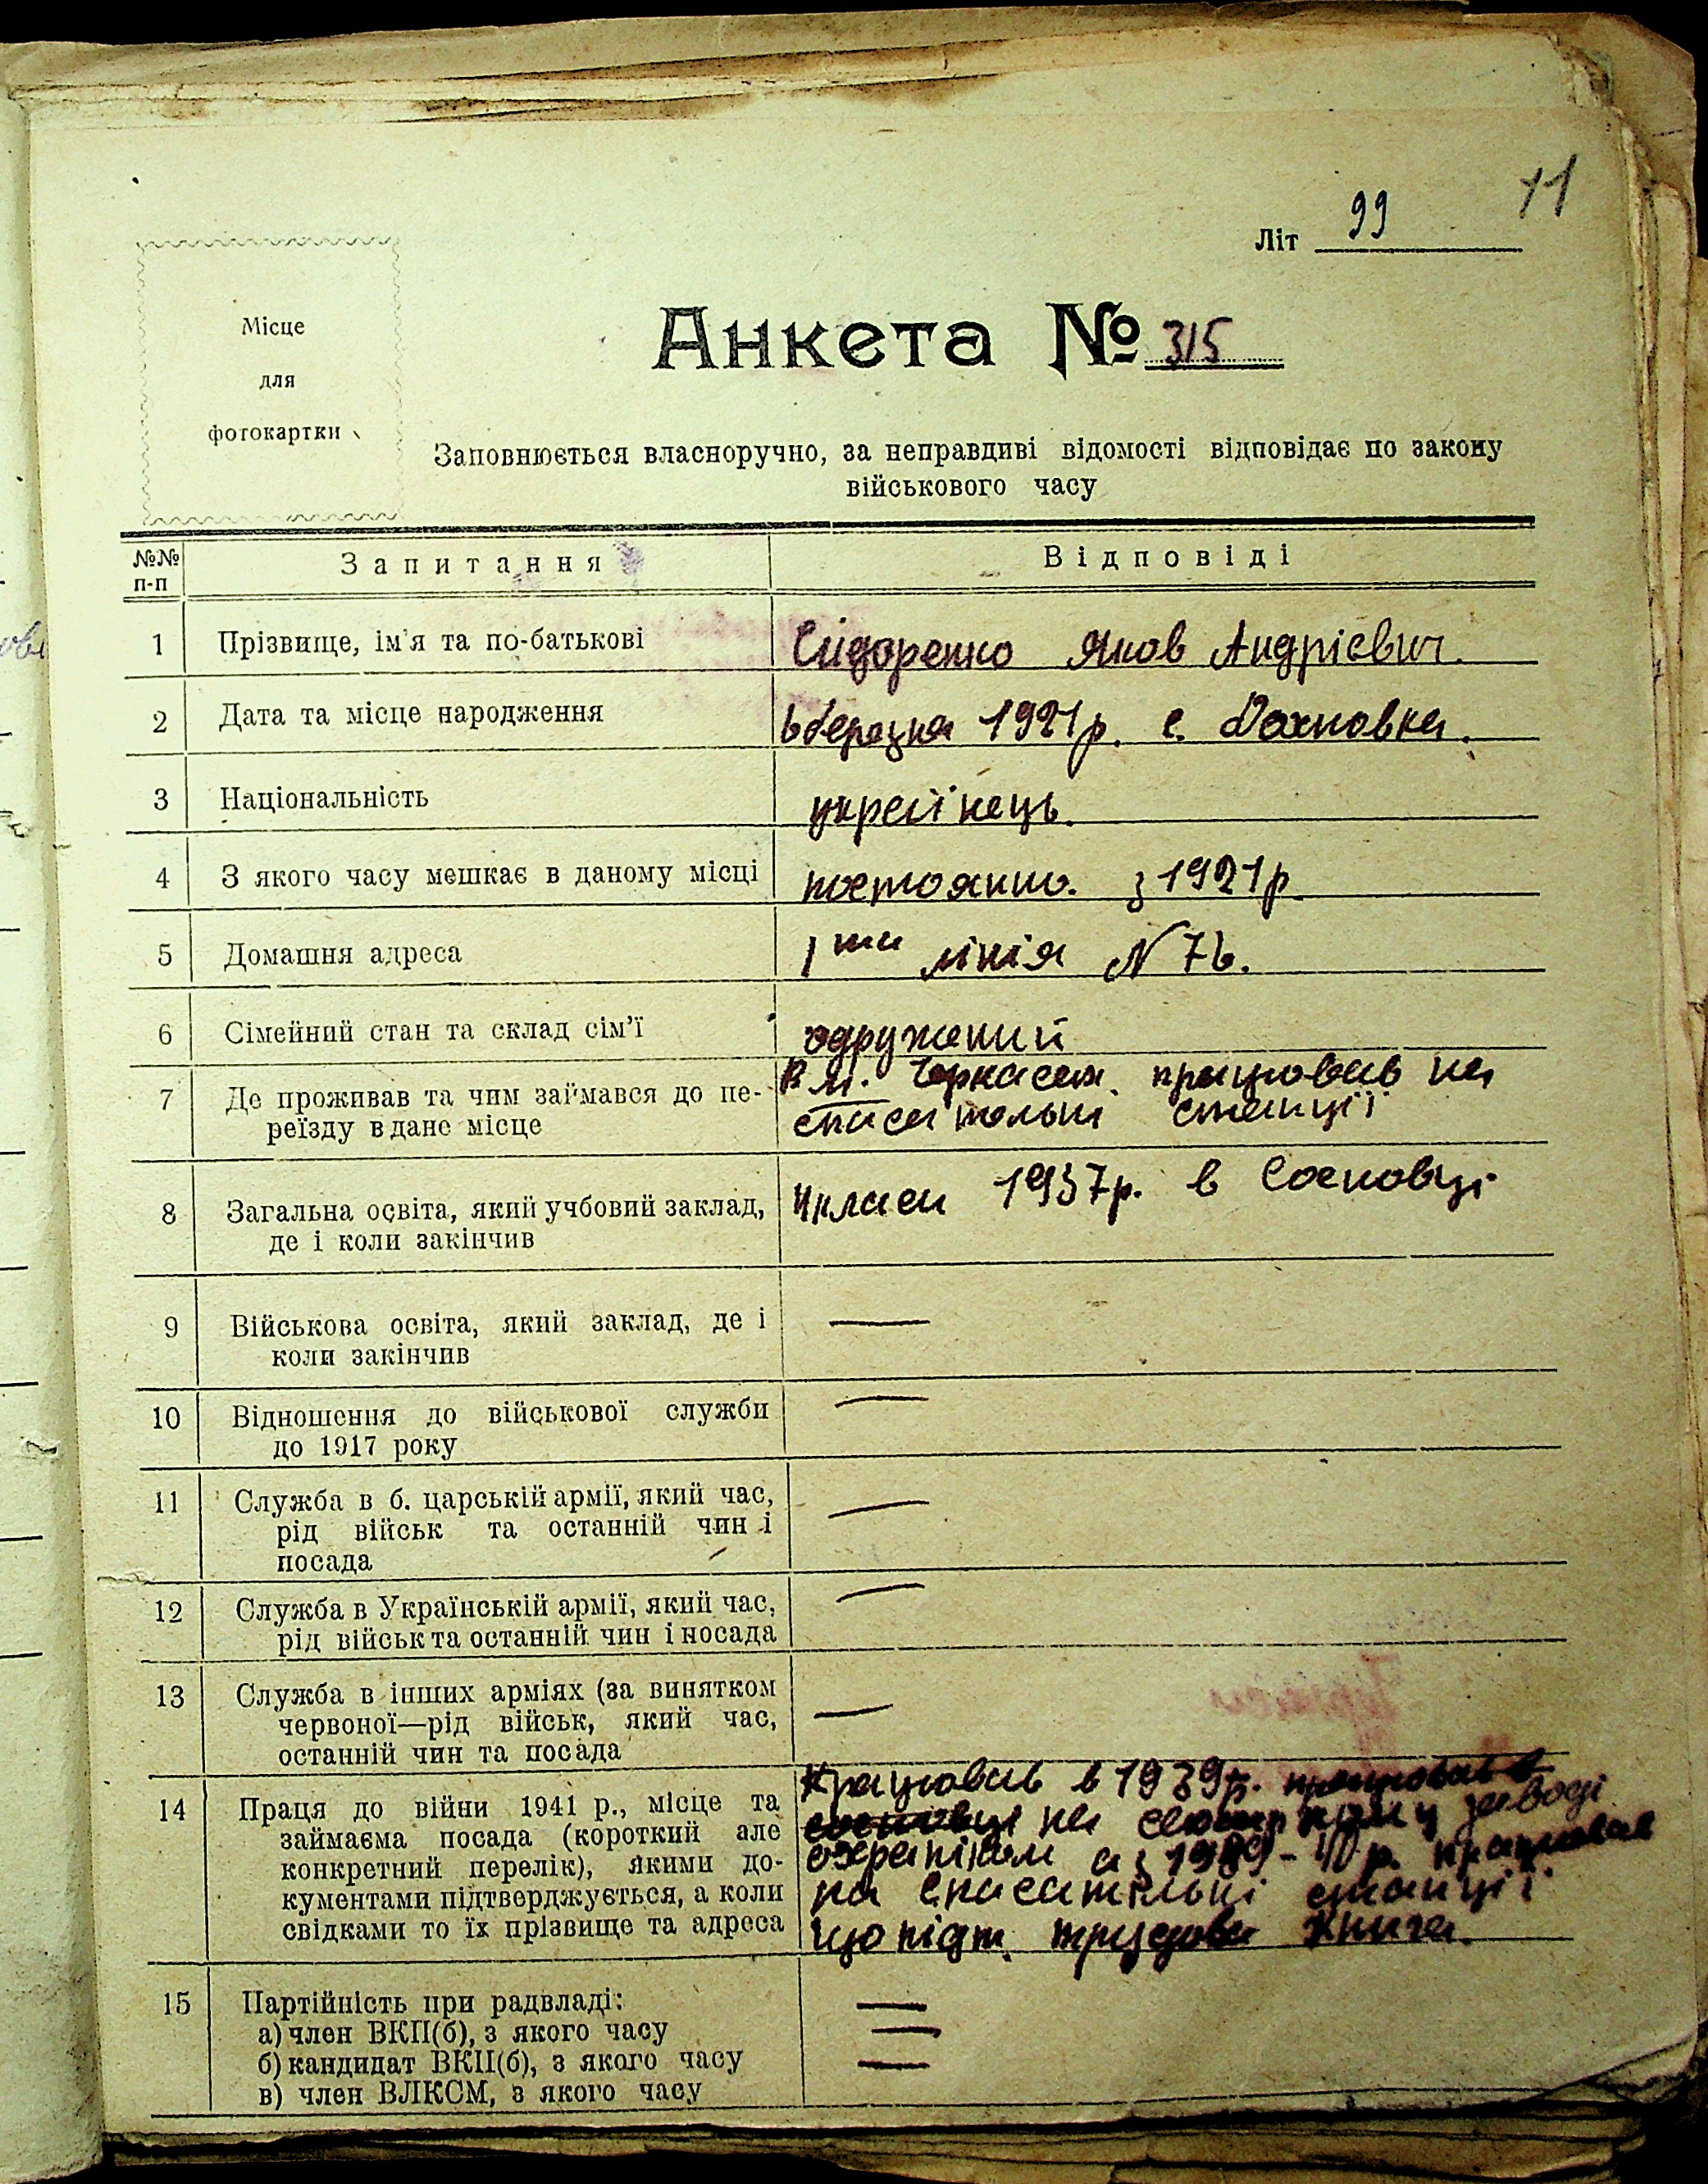 11
Літ 99
Місце
для
фотокартки
Анкета № 315
Заповнюється власноручно, за неправдиві відомості відповідає по закону
військового часу
№№ п-п
Запитання
Відповіді
1 Прізвище, ім'я та по-батькові Сидоренко Яков Андрієвич.
2 Дата та місце народження 6 березня 1921 р. с. Дахновка.
3 Національність україінець.
4 З якого часу мешкає в даному місці постоянно. з 1921 р.
5 Домашня адреса 1ша лінія N 76.
6 Сімейний стан та склад сім'ї одружений
7 Де проживав та чим займався до пе- В м. Черкасах. працював на
реїзду в дане місце спасательні станції
8 Загальна освіта, який учбовий заклад, 4 класи 1937р. в Сосновці
де і коли закінчив
9 Військова освіта, який заклад, де і —
коли закінчив
10 Відношення до військової служби —
до 1917 року
11 Служба в б. царській армії, який час, —
рід військ та останній чин і
посада
12 Служба в Українській армії, який час, —
рід військ та останній чин і посада
13 Служба в інших арміях (за винятком —
червоної—рід військ, який час,
останній чин та посада
14 Праця до війни 1941 р., місце та Працював в 1939р. працював в
займаєма посада (короткий але сосновці на заводі
конкретний перелік), якими до- охраніком а з 1939-40 р. працював
кументами підтверджується, а коли на спасательні станції
свідками то їх прізвище та адреса що підт. трудова книга.
15 Партійність при радвладі:
а) член ВКП(б), з якого часу —
б) кандидат ВКП(б), з якого часу —
в) член ВЛКСМ, з якого часу —